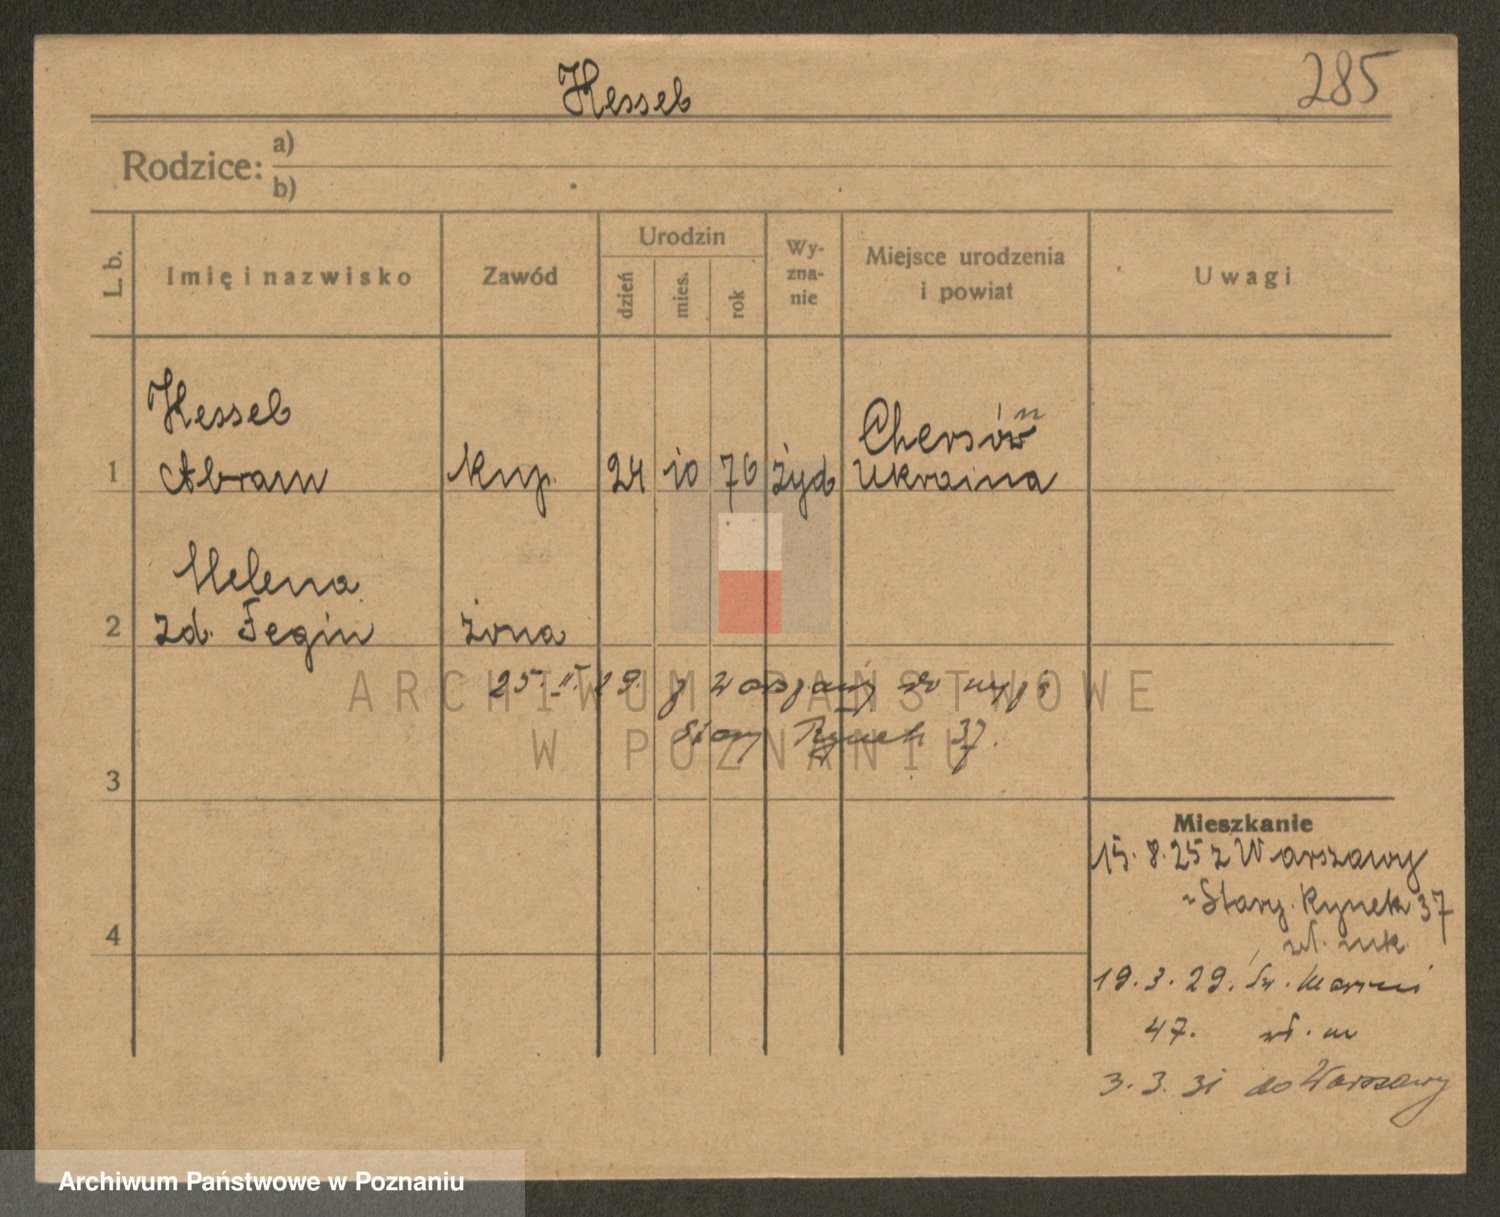 Hessel
285
Rodzice:
a)
b)
L. b.
Imię i nazwisko
Zawód
Urodzin
dzień
mies.
rok
Wy-
zna-
nie
Miejsce urodzenia
i powiat
Uwagi
Hessel
Chersóń
1 Abram kup. 24 10 76 żyd Ukraina
Helena
2 zd. Fegin żona
25. II. 29. z Warszawy do męża
Stary Rynek 37.
3
4
Mieszkanie
15. 8. 25 z Warszawy
Stary Rynek 37
wł. mk.
19. 3. 29. Św. Marcin
47. wł. m
3. 3. 31 do Warszawy
ARCHIWUM PAŃSTWOWE
W POZNANIU
Archiwum Państwowe w Poznaniu